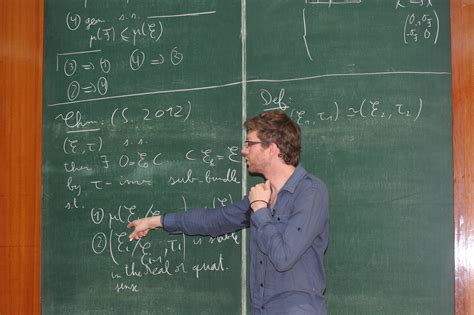 (4) geom s.s.
μ(F) ≤ μ(E)
(3) ⇒ (1) (4) ⇒ (3)
(2) ⇒ (4)
Thm: (S. 2012)
(E, τ) s.s.
then ∃ 0=E₀ ⊂ ⊂ E_k = E
by τ-inv sub-bundle
s.t.
1) μ(E_i/
2) (E_i/E_{i-1}, τ_i) is stable
in the real or quat.
sense
0, σ_3
σ_3 0
Def: (E_1, τ_1) ≃ (E_2, τ_2)